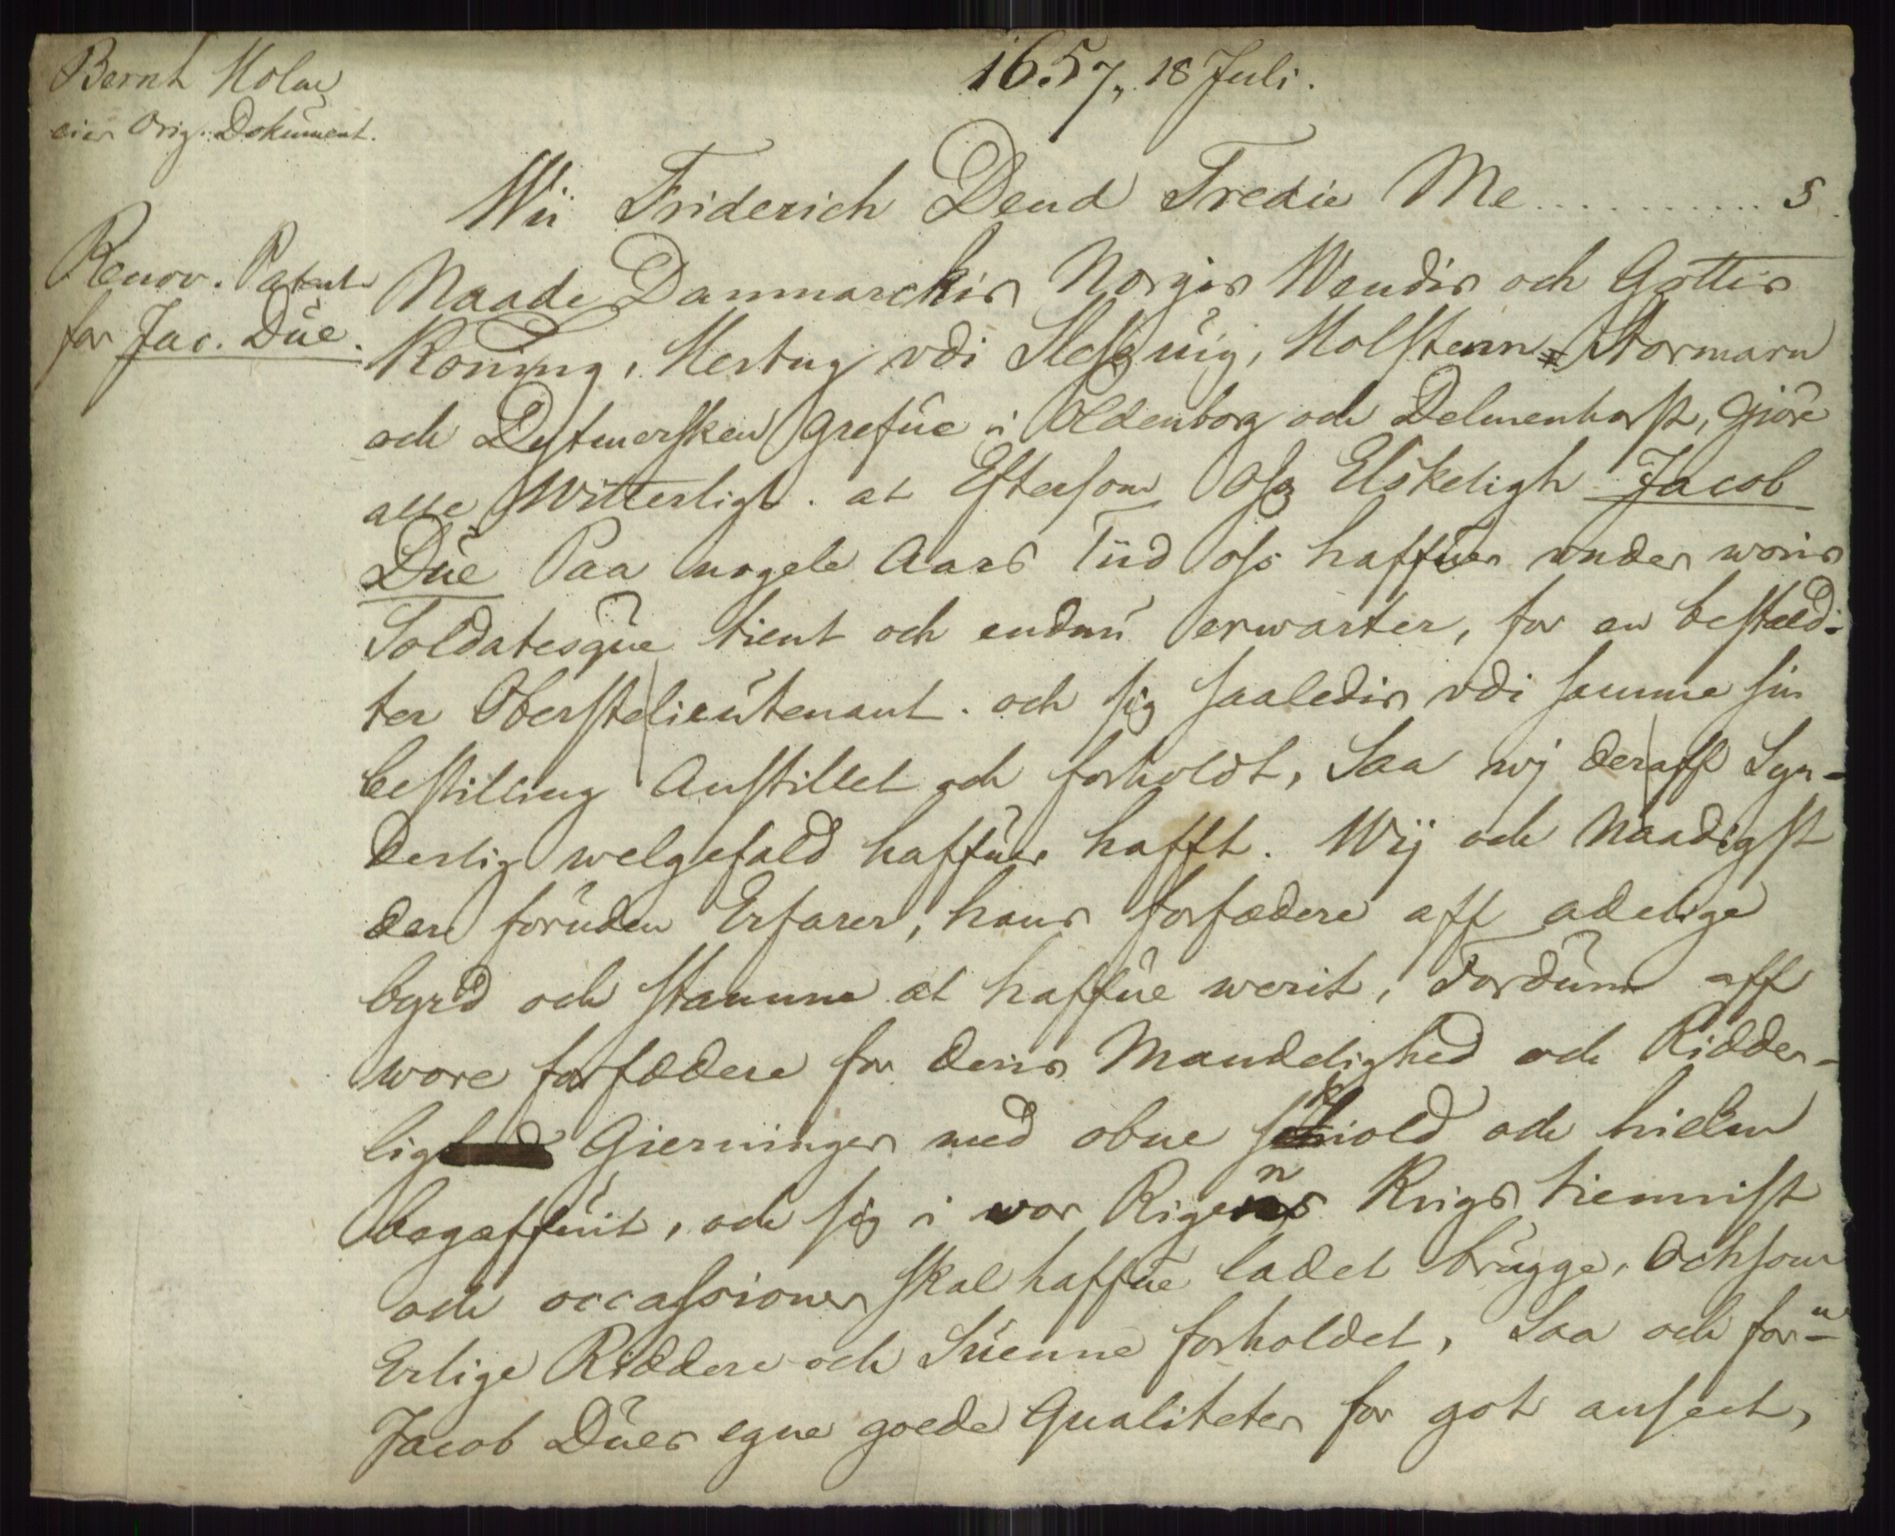 1657, 18 Juli.
Bernt Holm
eier Orig. Dokument.
Renov. Patent
for Jac. Düe.
Wii Friderich Dend Tredie Me........... s
Naade Danmarckis Norgis Wendis och Gottis
Koning, Hertug vdi Sleszuig, Holstenn Stormarn
och Dytmersken Grefue i Oldenborg och Delmenhorst, Giöre
alle Witterligt. at Eftersom Osz Elskeligh Jacob
Düe Paa nogele Aars Tiid oss haffuer vnder woris
Soldatesque tient och endnu erwarter, for en bestæld-
ter Oberstelieutenant. och sig saaledis vdi samme sin
bestilling Anstillet och forholdt, Saa wij deraff Syn-
derlig welgefald haffuer hafft. Wij och Naadigst
der foruden Erfarer, hans forfædere aff adelige
byrd och stamme at haffue werit, Fordum aff
wore forfædere for deris Mandelighed och Ridder-
lig Gierninger med obne skiold och hielm
begaffuit, och sig i wor Rigens Krigs tienniste
och occassioner skal haffue ladet brugge, Ochsom
Erlige Riddere och Suenne forholdet, Saa och forn
Jacob Dües egne goede Qualiteter for got anseet,